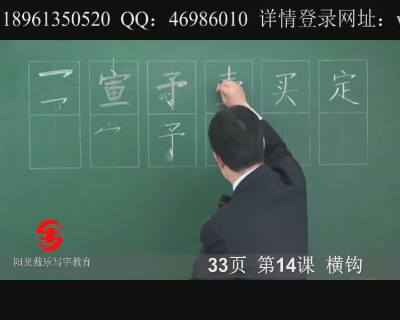 18961350520 QQ：46986010 详情登录网址：
宣 予 买 定
予
阳光戴乐写字教育
33页 第14课 横钩